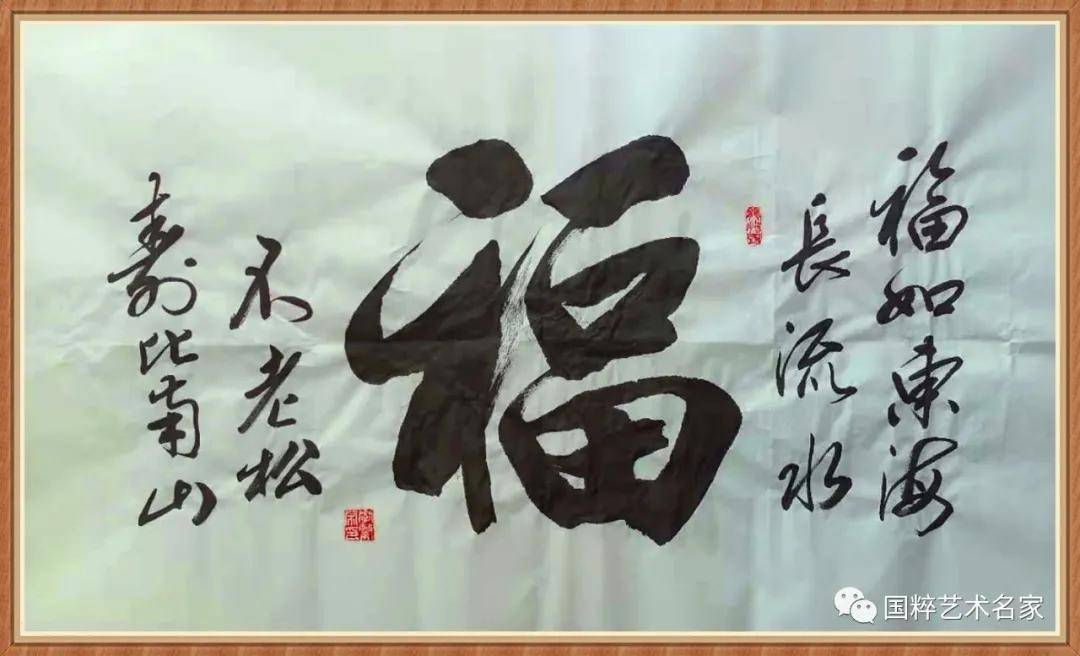 福如東海
長流水
福
不老松
壽比南山
国粹艺术名家